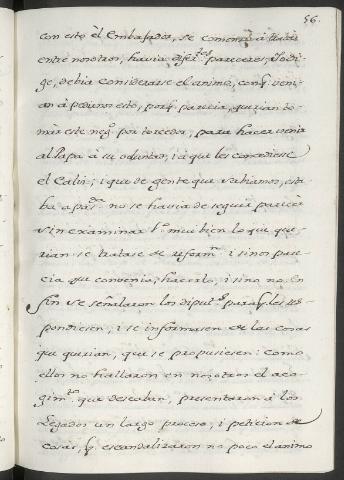 56.
con esto el Embajador, se comenzó á tratar
entre nosotros, havia difer.tes pareceres, Yo di-
ge, debia considerarse el animo, conq. veni-
an á pedirnos esto, porq. parecia, querian to-
mar este neg.o por torcedor, para hacer venir
al Papa á su voluntad, i á que les concediese
el Caliz; i que de gente que sabiamos, esta-
ba apas.da no se havia de seguir parecer
sin examinar muy bien lo que que-
rian se tratase de reform.n i si nos pare-
cia que convenia, hacerlo, i si no no. En
fin se señalaron los diput.s paraq. les res-
pondiesen, i se informasen de las cosas
que querian, que se propusiesen: como
ellos no hallaron en nosotros el aco-
gim.to que deseaban, presentaron á los
Legados un largo proceso, i peticion de
cosas, q. escandalizaron no poco el animo